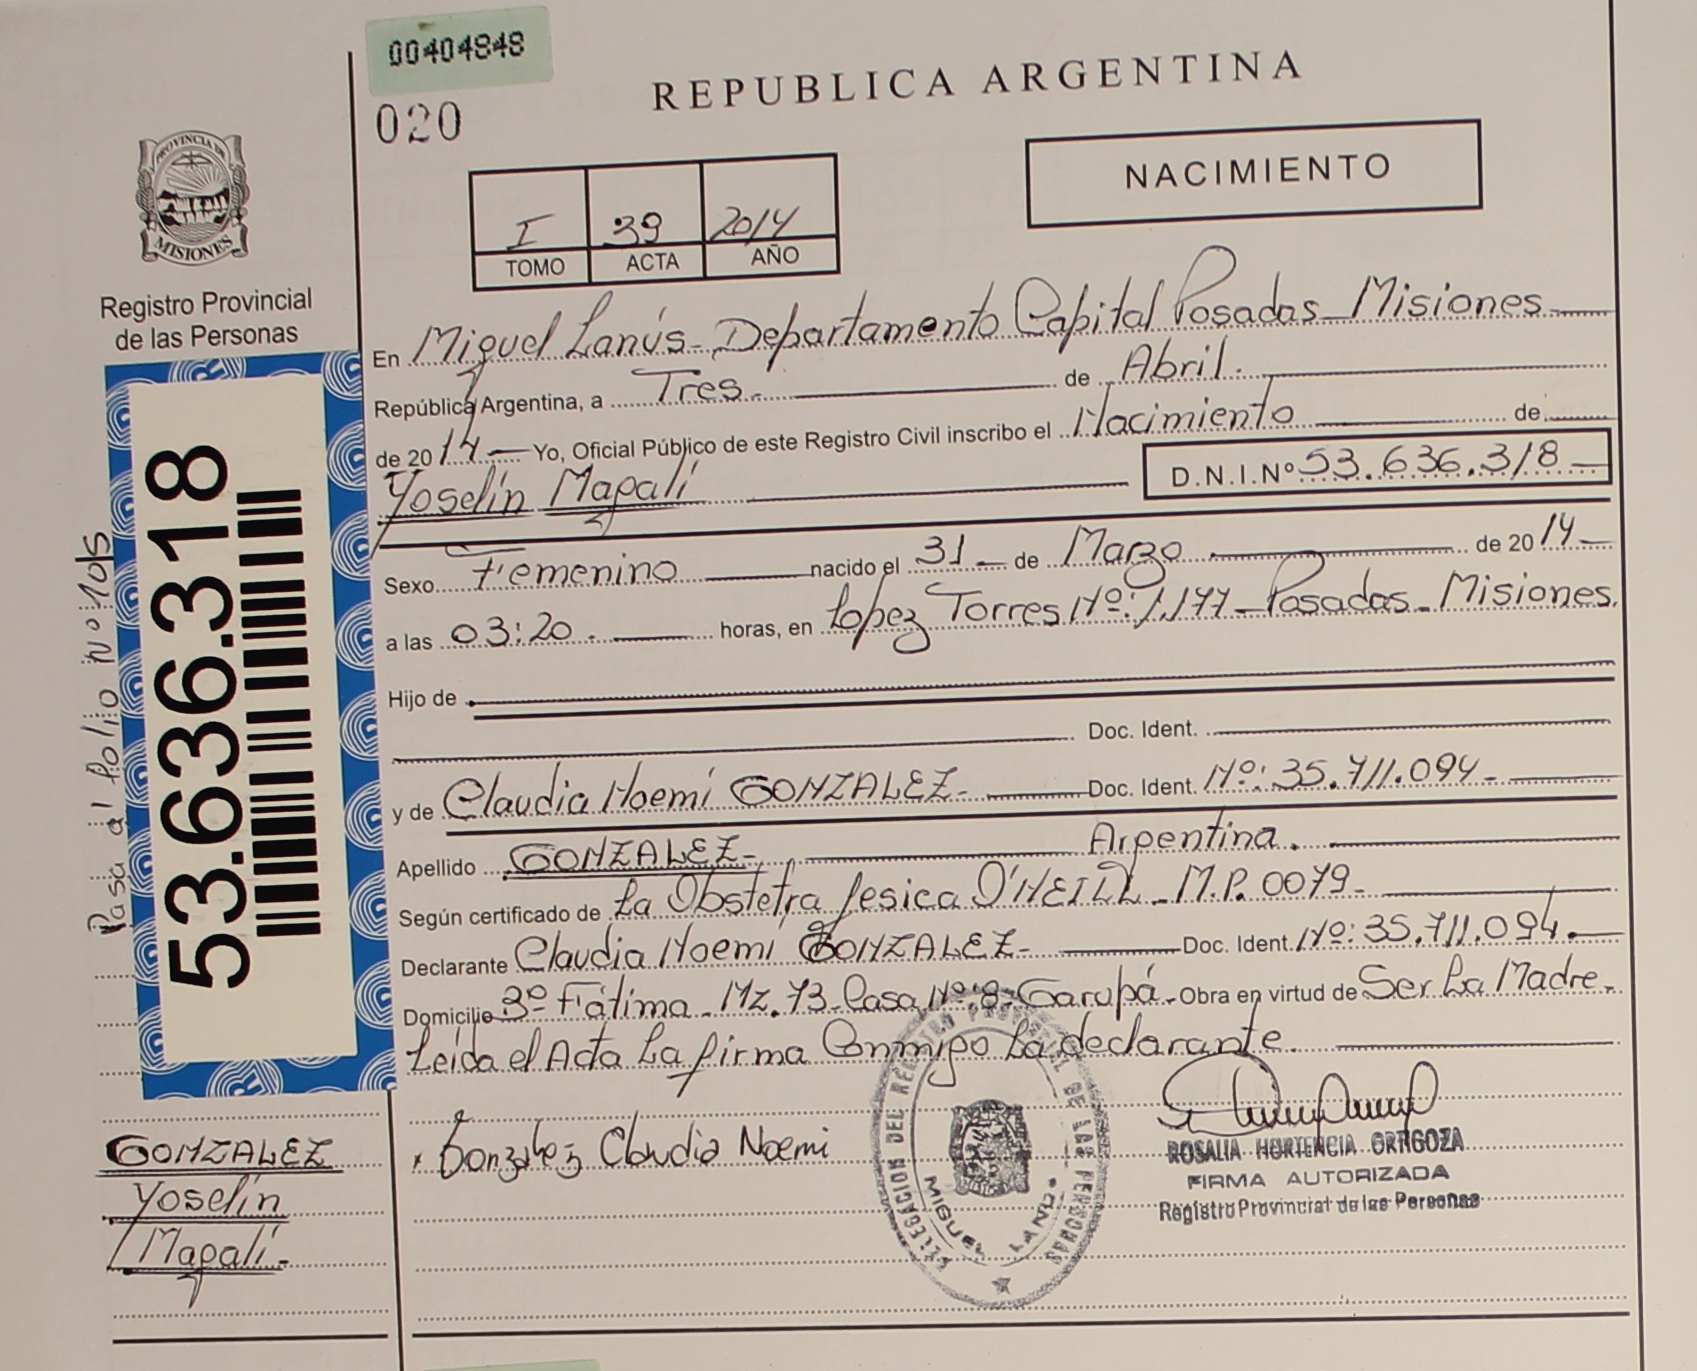 00404848
020
REPUBLICA ARGENTINA
NACIMIENTO
I 39 2014
TOMO ACTA AÑO
PROVINCIA DE
MISIONES
Registro Provincial
de las Personas
En Miguel Lanús - Departamento Capital Posadas - Misiones
República Argentina, a Tres de Abril.
de 2014 Yo, Oficial Público de este Registro Civil inscribo el Nacimiento de
Yoselín Magalí
D.N.I.Nº 53.636.318
Sexo Femenino nacido el 31 de Marzo de 2014
a las 03:20. horas, en Lopez Torres Nº: 1.177 - Posadas - Misiones.
Hijo de
Doc. Ident.
y de Claudia Noemí GONZALEZ - Doc. Ident. Nº: 35.711.094 -
Apellido GONZALEZ - Argentina.
Según certificado de La Obstetra Jesica O'NEILL - M.P. 0079 -
Declarante Claudia Noemi GONZALEZ - Doc. Ident. Nº: 35.711.094.
Domicilio Bº Fátima - Mz. 73 - Casa Nº 8 - Garupá - Obra en virtud de Ser La Madre.
Leída el Acta La firma Conmigo La declarante.
Gonzalez Claudia Noemi
DELEGACION DEL REGISTRO PROVINCIAL DE LAS PERSONAS
MIGUEL LANUS
ROSALIA HORTENCIA ORTIGOZA
FIRMA AUTORIZADA
Registro Provincial de las Personas
53.636.318
Pasa al Folio Nº 105
GONZALEZ
Yoselín
Magalí -